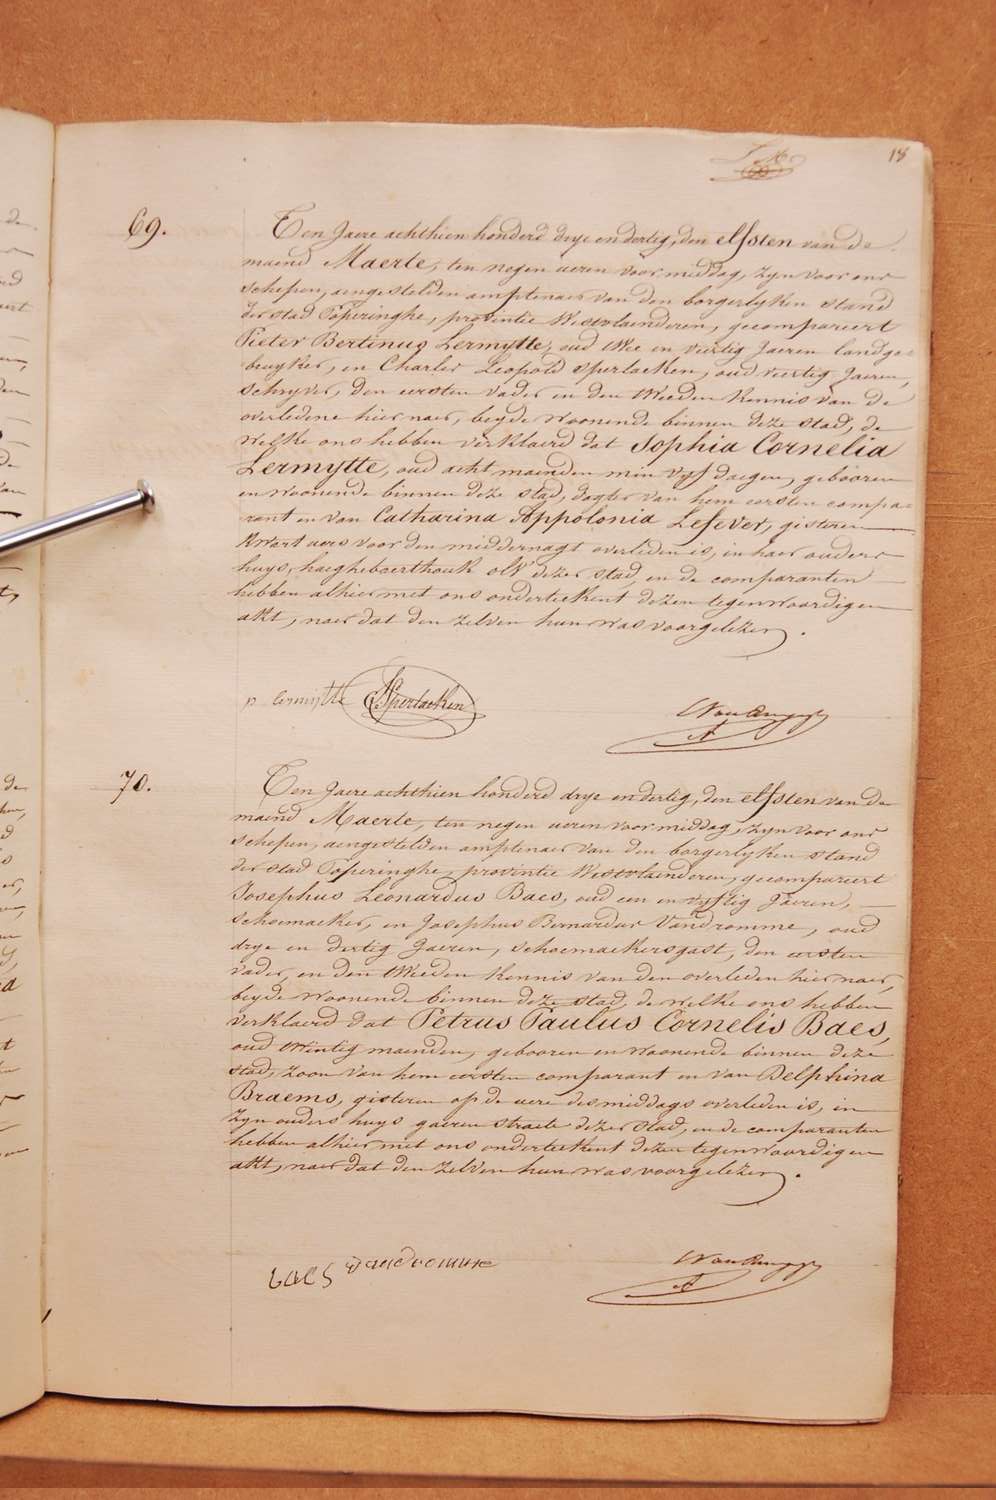 18
69.
Ten Jaere achthien honderd drye en dertig, den elfsten van de
maend Maerte, ten negen ueren voor middag, zyn voor ons
schepen, aengestelden amptenaer van den borgerlyken stand
der stad Poperinghe, provintie Westvlaenderen, gecompareert
Pieter Bertinus Lermytte, oud twee en viertig Jaeren landge-
bruyker, en Charles Leopold Sperlaeken, oud viertig Jaeren,
schryver, den eersten vader en den tweeden kennis van de
overledene hier naer, beyde woonende binnen deze stad, de
welke ons hebben verklaerd dat Sophia Cornelia
Lermytte, oud acht maenden min vyf daegen, gebooren
en woonende binnen deze stad, dogter van hem eersten compa-
rant en van Catharina Appolonia Lefever, gisteren
kwart uers voor den middernagt overleden is, in haer ouders
huys, haeghebaerthouk olv dezer stad, en de comparanten
hebben alhier met ons onderteekent dezen tegenwoordigen
akt, naer dat den zelven hun was voorgelezen.
p lermytte Sperlaeken
70.
Ten Jaere achthien honderd drye en dertig, den elfsten van de
maend Maerte, ten negen ueren voor middag, zyn voor ons
schepen, aengestelden amptenaer van den borgerlyken stand
der stad Poperinghe, provintie Westvlaenderen, gecompareert
Josephus Leonardus Baes, oud een en vyftig Jaeren,
schoemaeker, en Josephus Bernardus Vandromme, oud
drye en dertig Jaeren, schoemaekersgast, den eersten
vader, en den tweeden kennis van den overleden hier naer,
beyde woonende binnen deze stad, de welke ons hebben
verklaerd dat Petrus Paulus Cornelis Baes,
oud twintig maenden, gebooren en woonende binnen deze
stad, zoon van hem eersten comparant en van Delphina
Braems, gisteren op de uere des middags overleden is, in
zyn ouders huys gaeren straete dezer stad, en de comparanten
hebben alhier met ons onderteekent dezen tegenwoordigen
akt, naer dat den zelven hun was voorgelezen.
baes vandromme